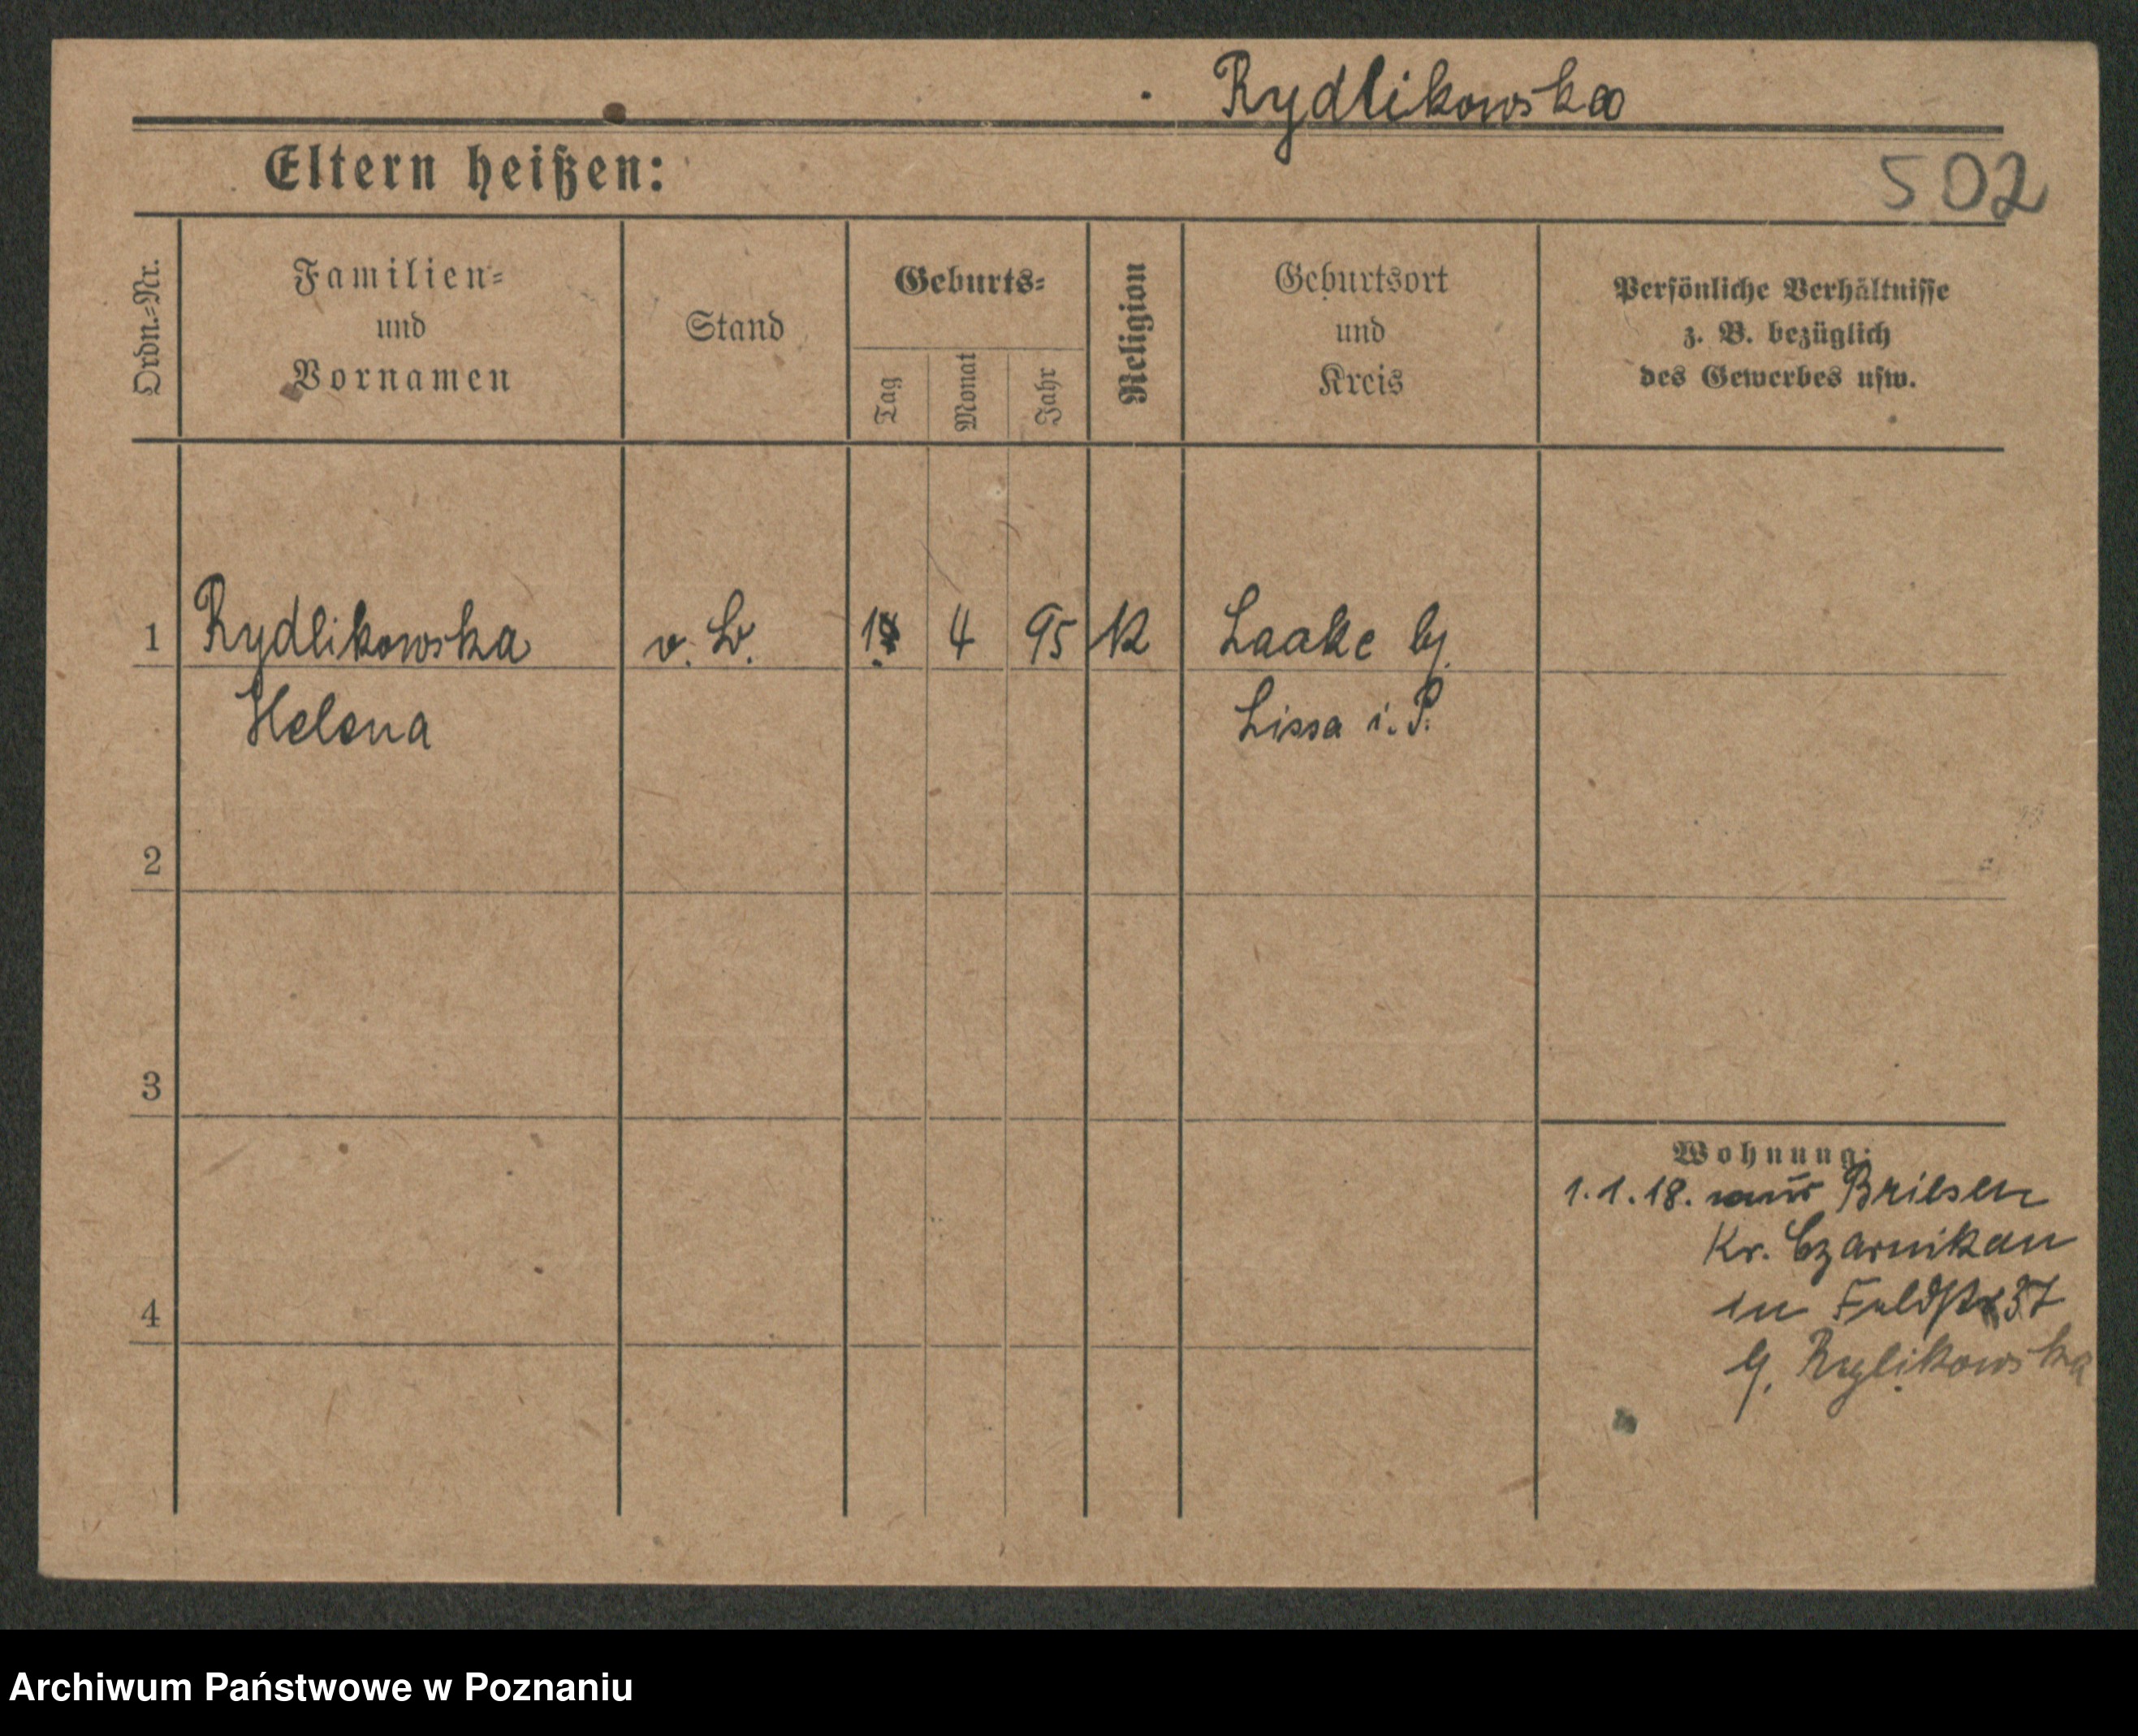 Rydlikowska
Eltern heißen:
502
Ordn.=Nr.
Familien=
und
Vornamen
Stand
Geburts=
Tag
Monat
Jahr
Religion
Geburtsort
und
Kreis
Persönliche Verhältnisse
z. B. bezüglich
des Gewerbes usw.
1 Rydlikowska 4 95 K Laake
Helena Lissa i. P.
2
3
Wohnung:
1.1.18. Briesen
Kr. Czarnikau
in Feldstr 37
4
Rylikowska
Archiwum Państwowe w Poznaniu